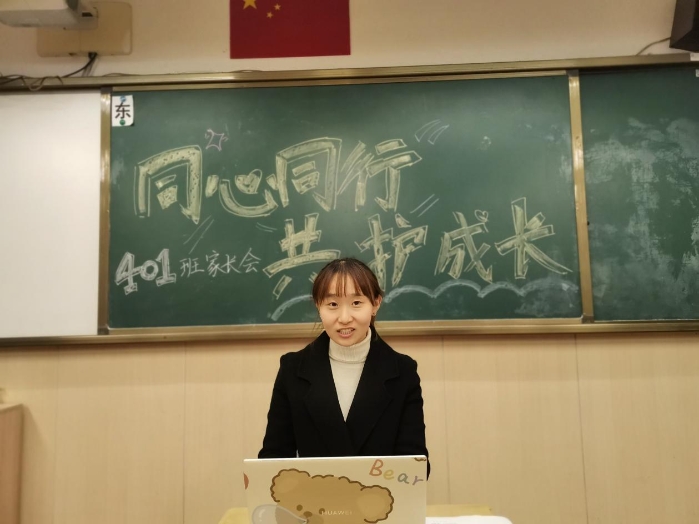 东
同心同行
共护成长
401班家长会
Bear
HUAWEI